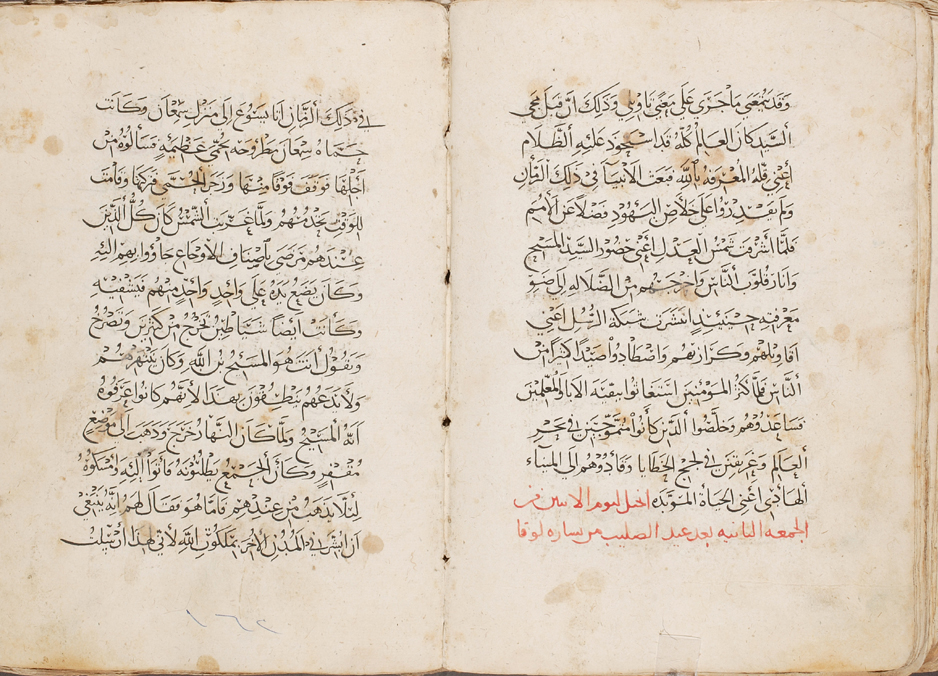 وقد يتمعنى ما جرى على معنى تاويلي وذلك ان قبل مجي
السيد كان العالم كله قد استحوذ عليه الظلام
اعني قله المعرفه بالله فبعث الانبيا في ذلك الزمان
ولم يقدروا على خلاص اليهود فضلا عن الامم
فلما اشرقت شمس العدل اعني حضور السيد المسيح
وانار قلوب الناس واخرجهم من الضلاله الى ضو
معرفته حينئذ انتشرت شبكة الرسل اعني
اقاويلهم وكرازتهم واصطادوا صيدا كثيرا من
الناس فلما كثر المومنين استغاثوا ببقية الابا والمعلمين
فساعدوهم وخلصوا الذين كانوا متموجين في بحر
العالم وغريقين في لجج الخطايا وقادوهم الى الميناء
الهادئ اعني الحياة الموبده انجيل ليوم الاثنين من
الجمعه الثانيه بعد عيد الصليب من بشاره لوقا
في ذلك الزمان اتا يسوع الى منزل سمعان وكانت
حماه سمعان مطروحه بحمى عظيمه فسالوه من
اجلها فوقف فوقا منها وزجر الحمى فتركتها وقامت
للوقت تخدمهم ولما غربت الشمس كان كل الذين
عندهم مرضى باصناف الاوجاع جاؤوا بهم اليه
وكان يضع يده على واحد واحد منهم فيشفيه
وكانت ايضا شياطين تخرج من كثيرين وتصرخ
وتقول انت هو المسيح بن الله وكان ينتهرهم
ولا يدعهم ينطقون بهذا لانهم كانوا عرفوه
انه المسيح ولما كان النهار خرج وذهب الى موضع
مقفر وكان الجمع يطلبونه فاتوا اليه وامسكوه
ليلا يذهب من عندهم فاما هو فقال لهم انه ينبغي
ان ابشر في المدن الاخر بملكوت الله لاني لهذا ارسلت
١٦٢